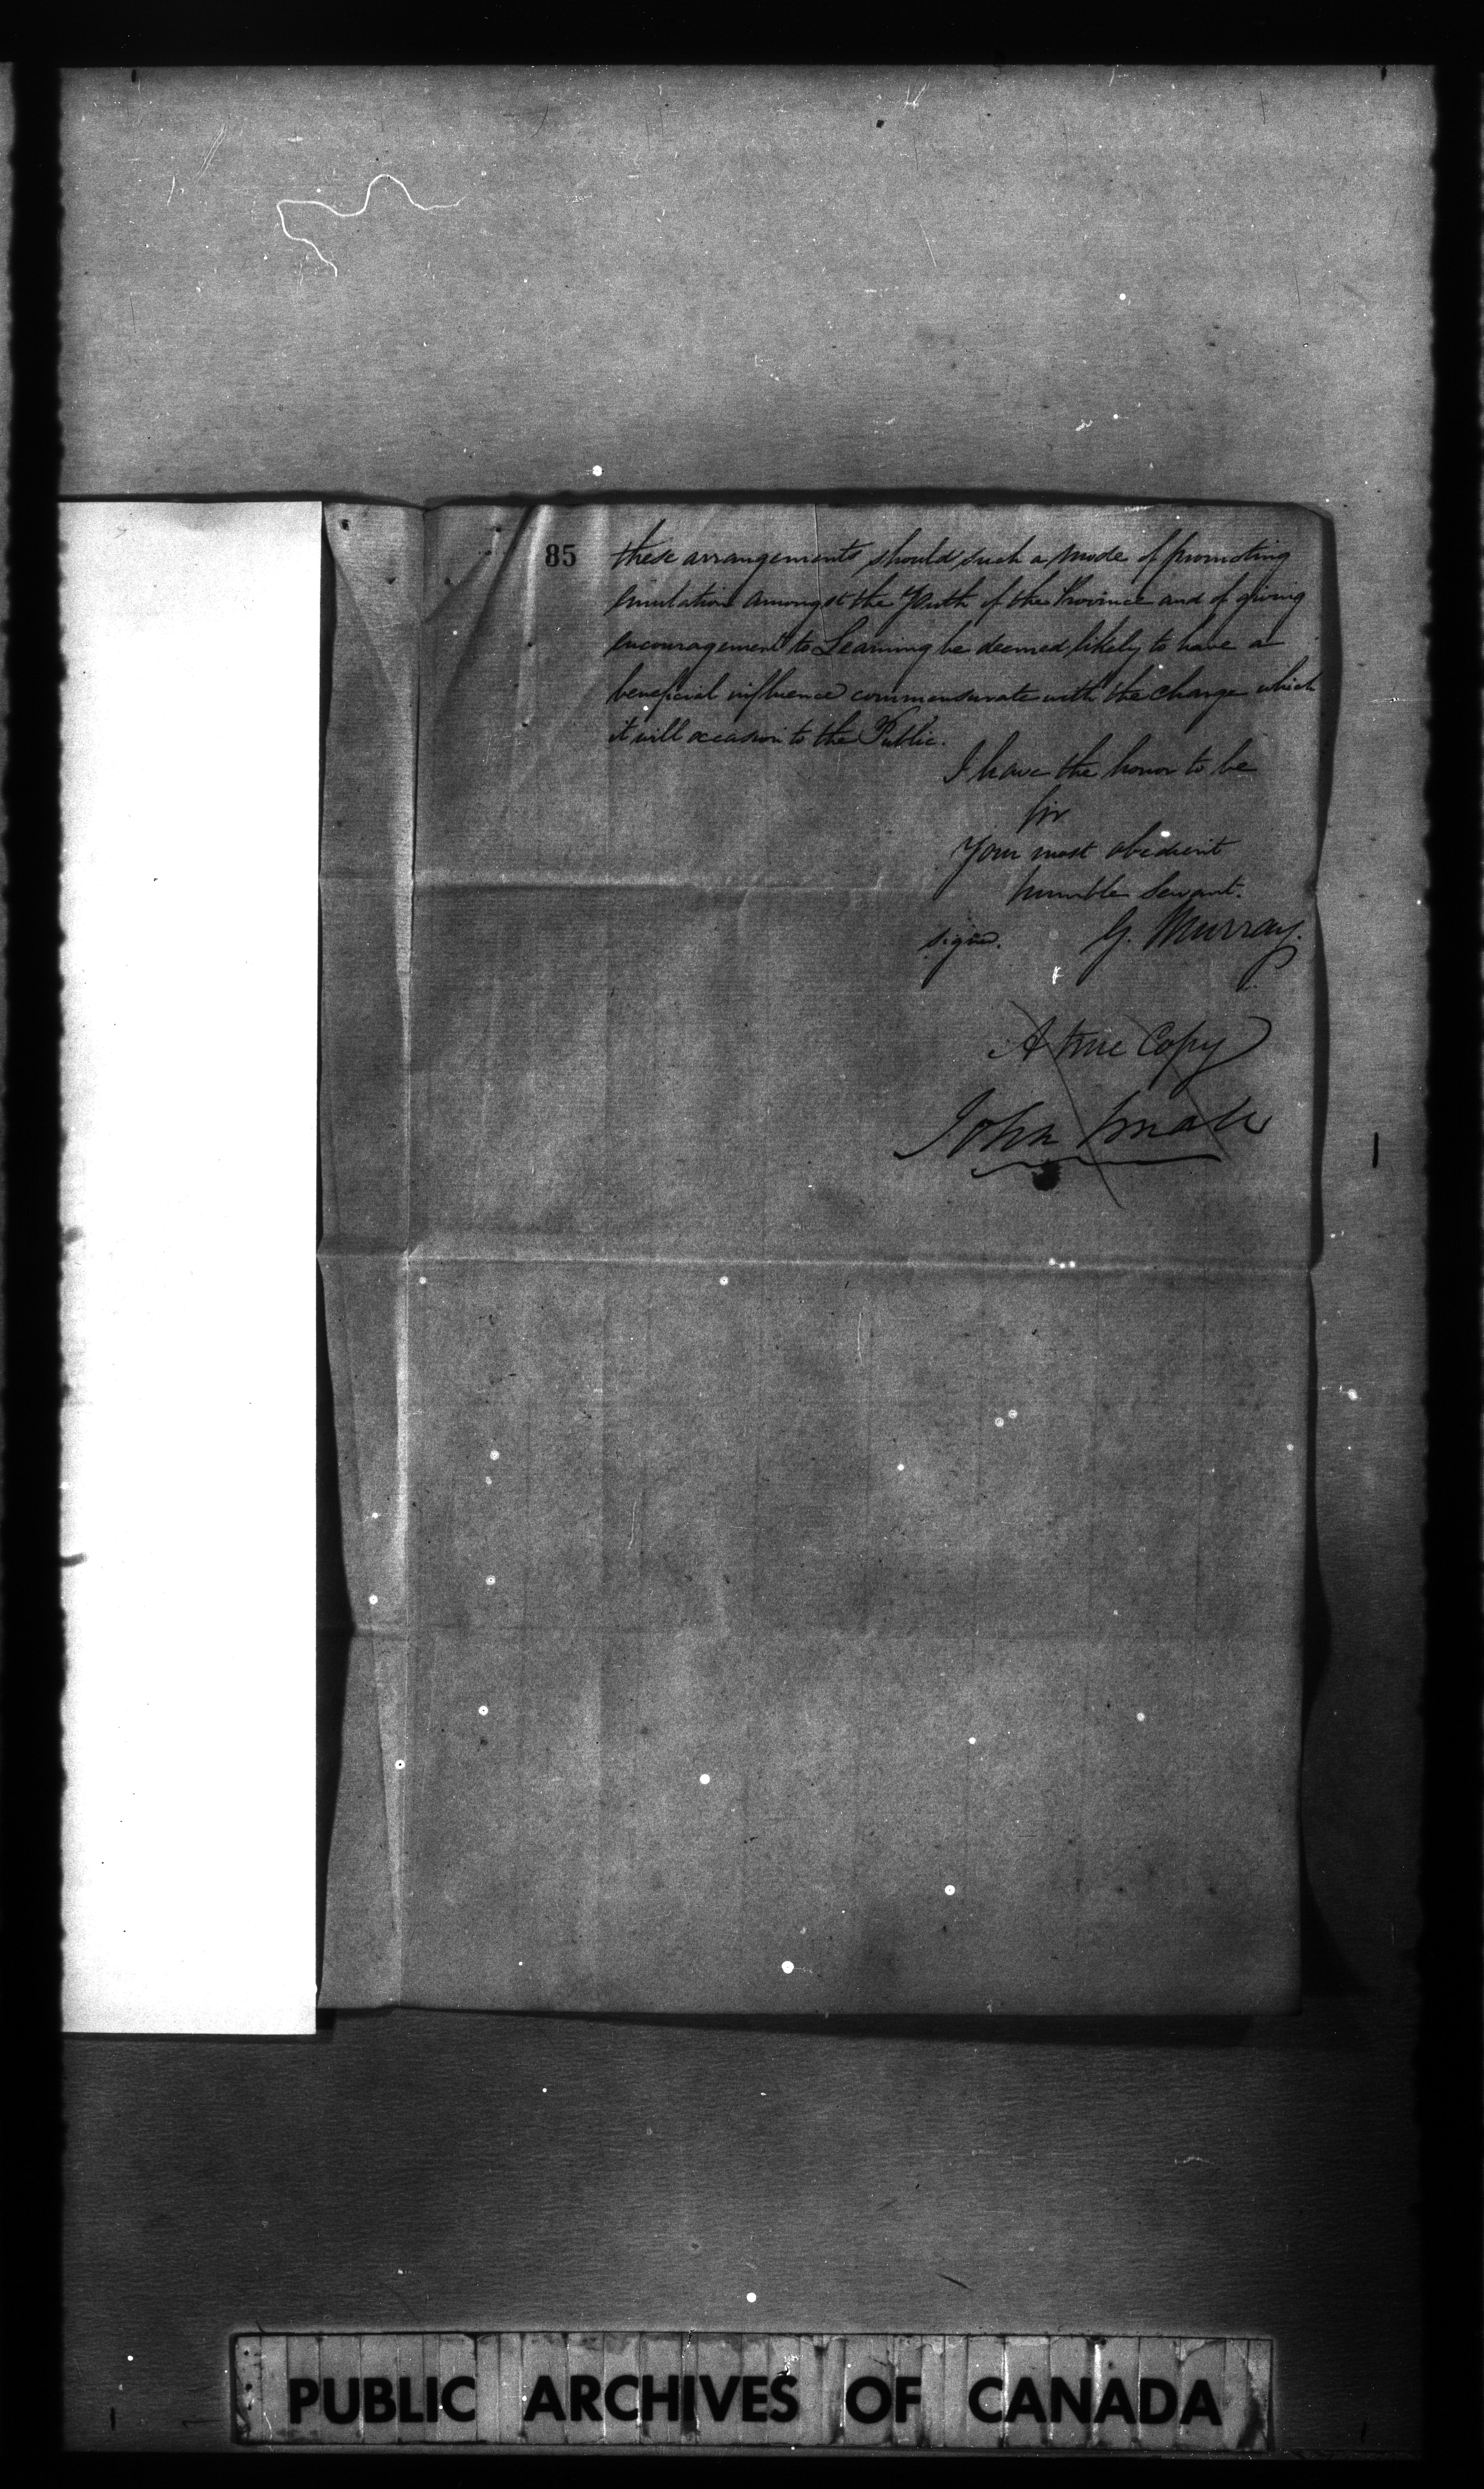 85
these arrangements should such a mode of promoting
emulation amongst the Youth of the Province and of giving
encouragement to Learning be deemed likely to have a
beneficial influence commensurate with the charge which
it will occasion to the Public.
I have the honor to be
Sir
Your most obedient
humble Servant.
signed. G. Murray.
A true Copy
John Small
PUBLIC ARCHIVES OF CANADA